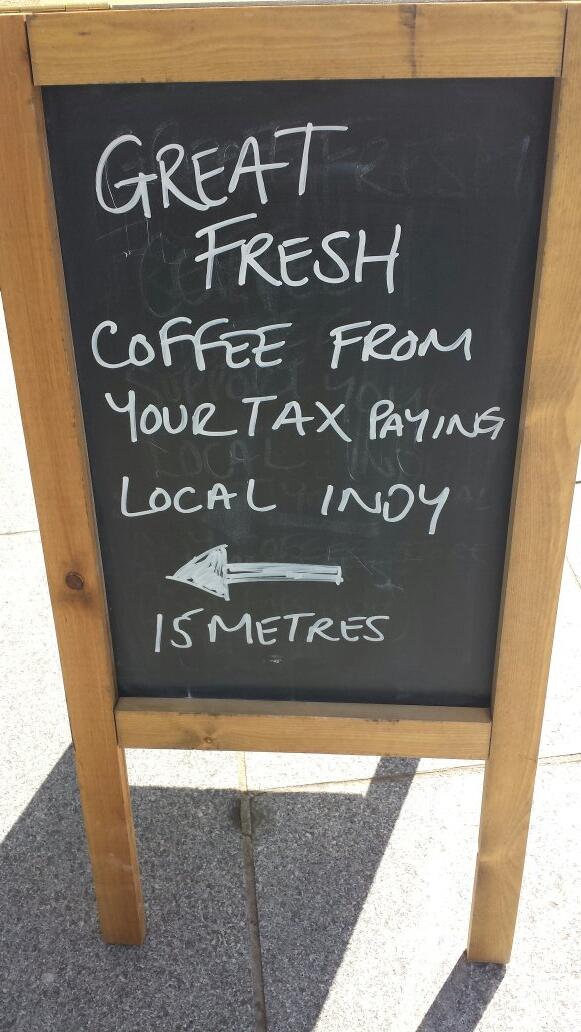 GREAT
FRESH
COFFEE FROM
YOUR TAX PAYING
LOCAL INDY
15 METRES